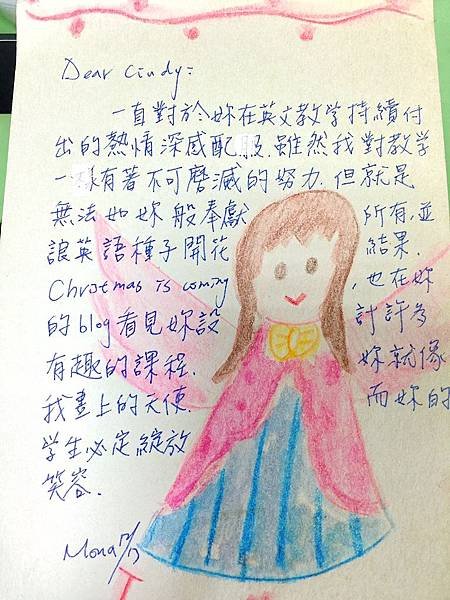 Dear Cindy:
一直對於妳在英文教学持續付
出的熱情深感配服.雖然我對教学
一樣有著不可磨滅的努力.但就是
無法如妳般奉獻 所有,並
讓英語種子開花 結果.
Christmas is coming ,也在妳
的blog看見妳設 計許多
有趣的課程. 妳就像
我畫上的天使. 而妳的
学生必定綻放
笑容.
Mona 12/13